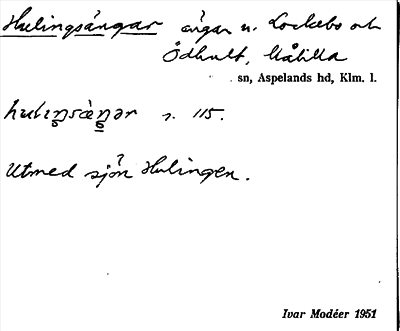 Hulingsängar ängar u. Lockebo och
Ödhult, Målilla
sn, Aspelands hd, Klm. l.
s. 115.
Utmed sjön Hulingen.
Ivar Modéer 1951